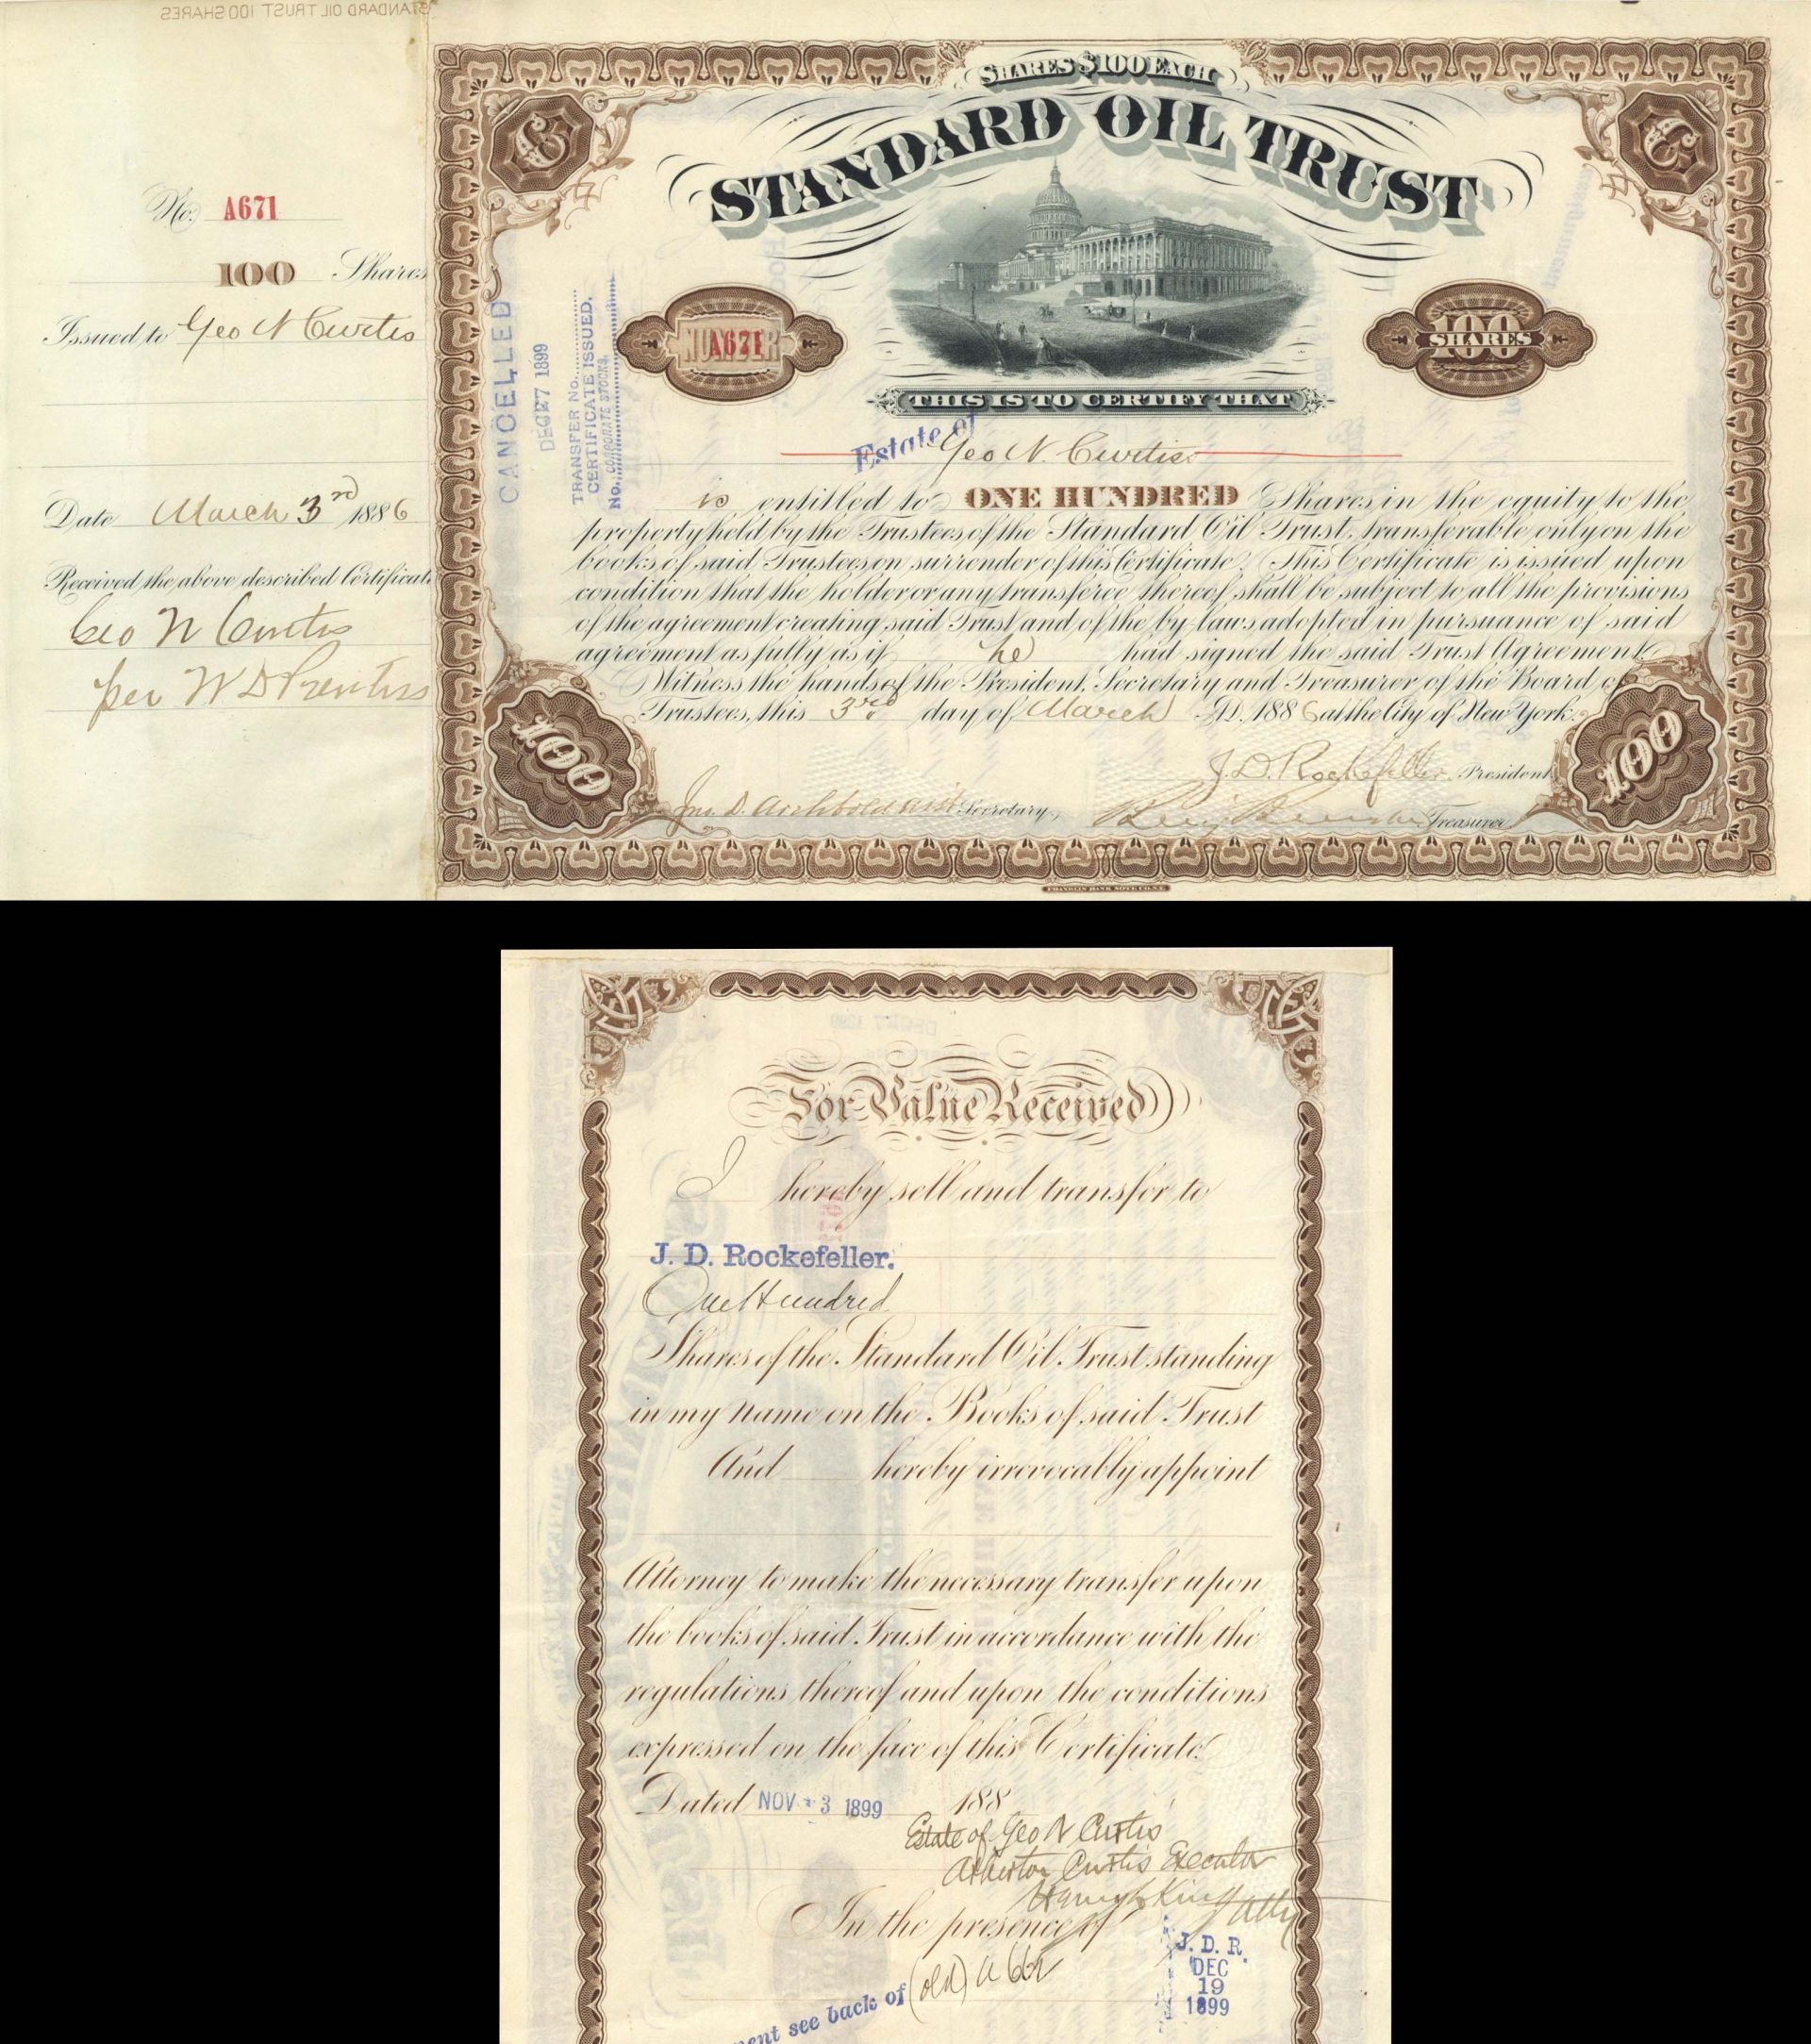 STANDARD OIL TRUST 100 SHARES
No. A671
100 Shares
Issued to Geo N Curtis
Date March 3rd 1886
Received the above described Certificate
Geo N Curtis
per W D Prentiss
SHARES $100 EACH
STANDARD OIL TRUST
C
C
CANCELLED
DEC 27 1899
TRANSFER No.
CERTIFICATE ISSUED.
No. CORPORATE STOCKS.
NUMBER
A671
100
SHARES
THIS IS TO CERTIFY THAT
Estate of
Geo N. Curtiss
is entitled to ONE HUNDRED Shares in the equity to the
property held by the Trustees of the Standard Oil Trust, transferable only on the
books of said Trustees on surrender of this Certificate. This Certificate is issued upon
condition that the holder or any transferee thereof shall be subject to all the provisions
of the agreement creating said Trust and of the by-laws adopted in pursuance of said
agreement as fully as if he had signed the said Trust Agreement.
Witness the hands of the President, Secretary and Treasurer of the Board of
Trustees, this 3rd day of March A.D. 1886 at the City of New York.
J. D. Rockefeller President
Jno. D. Archbold Secretary
Benj Brewster Treasurer
100
100
FRANKLIN BANK NOTE CO. N.Y.
For Value Received
I hereby sell and transfer to
J. D. Rockefeller.
One Hundred
Shares of the Standard Oil Trust standing
in my name on the Books of said Trust
And hereby irrevocably appoint
Attorney to make the necessary transfer upon
the books of said Trust in accordance with the
regulations thereof and upon the conditions
expressed on the face of this Certificate.
Dated NOV 3 1899 188
Estate of Geo N Curtis
Atherton Curtis Executor
King Atty
In the presence of
J. D. R.
DEC
19
1899
see back of (old) A